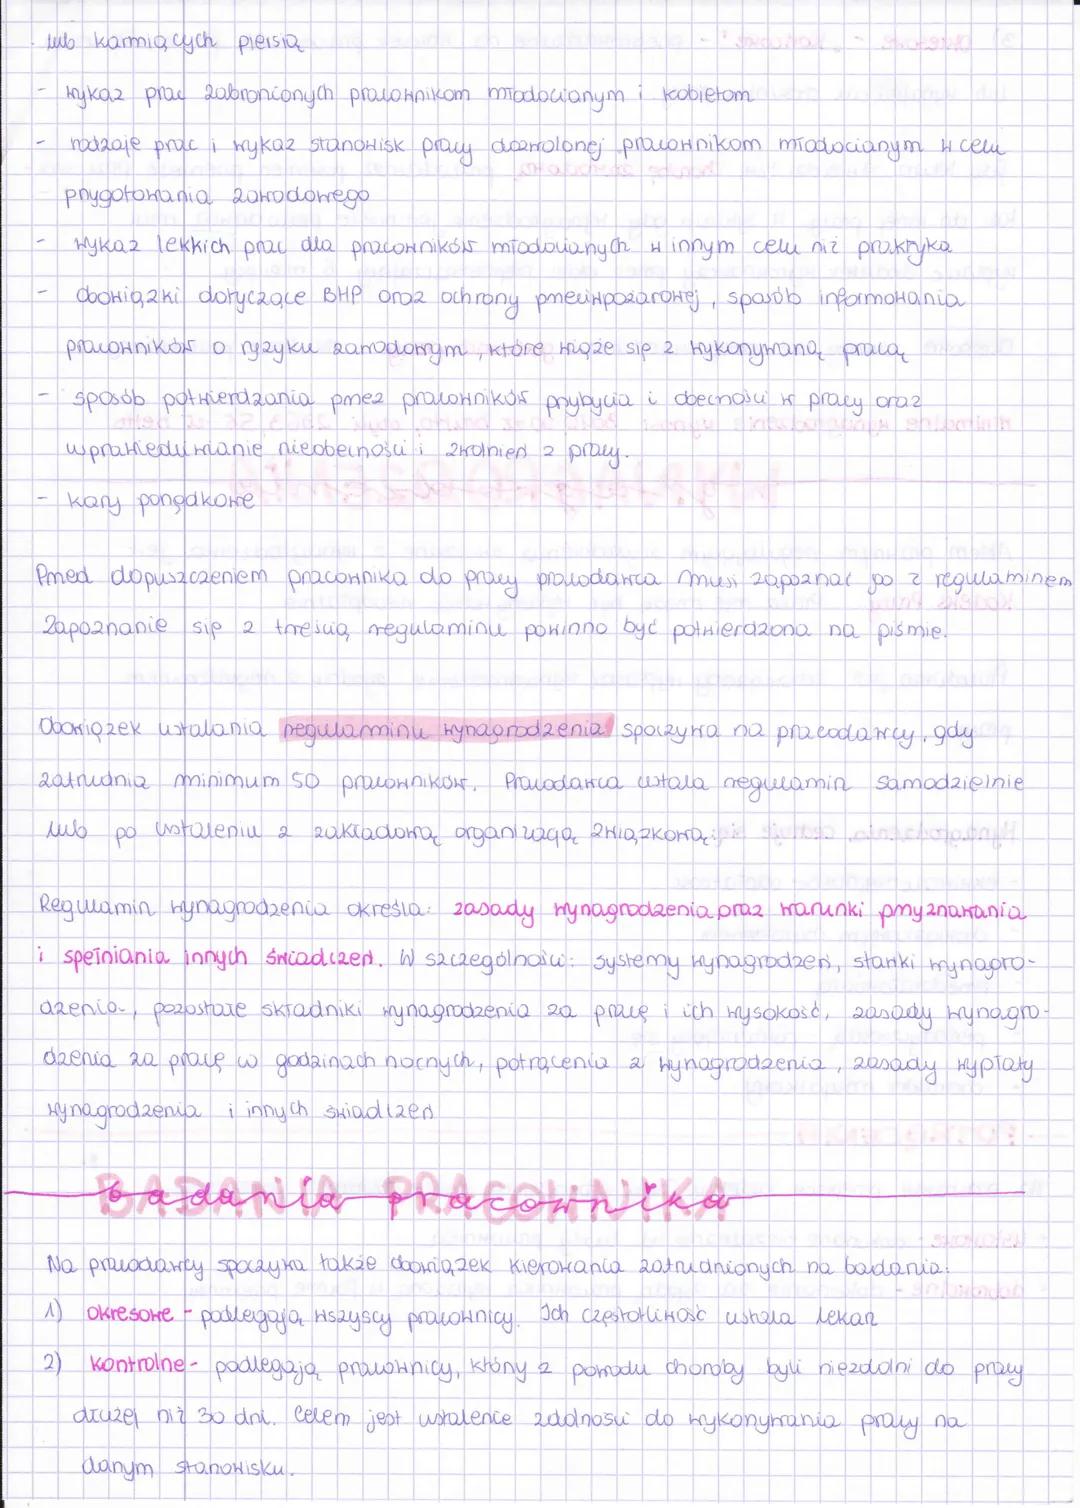 lub karmiących piersią
- wykaz prac zabronionych pracownikom młodocianym i kobietom
- rodzaje prac i wykaz stanowisk pracy dozwolonej pracownikom młodocianym w celu
przygotowania zawodowego
- wykaz lekkich prac dla pracowników młodocianych w innym celu niż praktyka
- obowiązki dotyczące BHP oraz ochrony przeciwpożarowej, sposób informowania
pracowników o ryzyku zawodowym, które wiąże się z wykonywaną pracą
- sposób potwierdzania przez pracowników przybycia i obecności w pracy oraz
usprawiedliwianie nieobecności i zwolnień z pracy.
- kary porządkowe
Przed dopuszczeniem pracownika do pracy pracodawca musi zapoznać go z regulaminem
Zapoznanie się z treścią regulaminu powinno być potwierdzona na piśmie.
Obowiązek ustalania regulaminu wynagrodzenia spoczywa na pracodawcy, gdy
zatrudnia minimum 50 pracowników. Pracodawca ustala regulamin samodzielnie
lub po ustaleniu z zakładową organizacją związkową.
Regulamin wynagrodzenia określa: zasady wynagrodzenia oraz warunki przyznawania
i spełniania innych świadczeń. W szczególności: systemy wynagrodzeń, stawki wynagro-
dzenia, pozostałe składniki wynagrodzenia za pracę i ich wysokość, zasady wynagro-
dzenia za pracę w godzinach nocnych, potrącenia z wynagrodzenia, zasady wypłaty
wynagrodzenia i innych świadczeń
badania pracownika
Na pracodawcy spoczywa także obowiązek kierowania zatrudnionych na badania:
1) okresowe - podlegają wszyscy pracownicy. Ich częstotliwość ustala lekarz
2) kontrolne - podlegają pracownicy, którzy z powodu choroby byli niezdolni do pracy
dłużej niż 30 dni. Celem jest ustalenie zdolności do wykonywania pracy na
danym stanowisku.